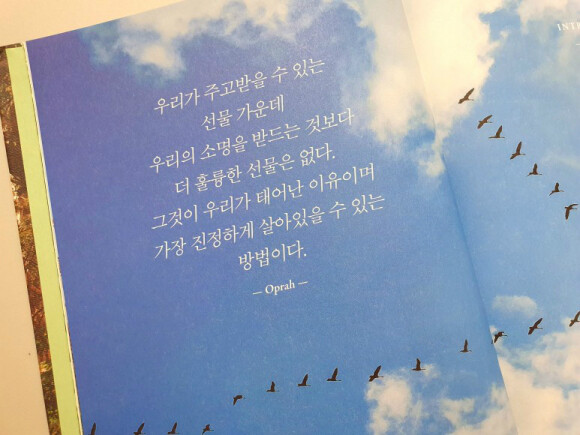 우리가 주고받을 수 있는
선물 가운데
우리의 소명을 받드는 것보다
더 훌륭한 선물은 없다.
그것이 우리가 태어난 이유이며
가장 진정하게 살아있을 수 있는
방법이다.
— Oprah —